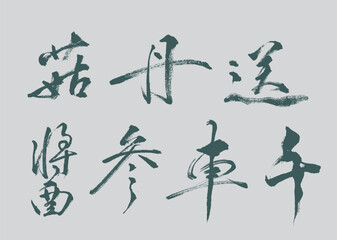 菇丹送
醬參車千